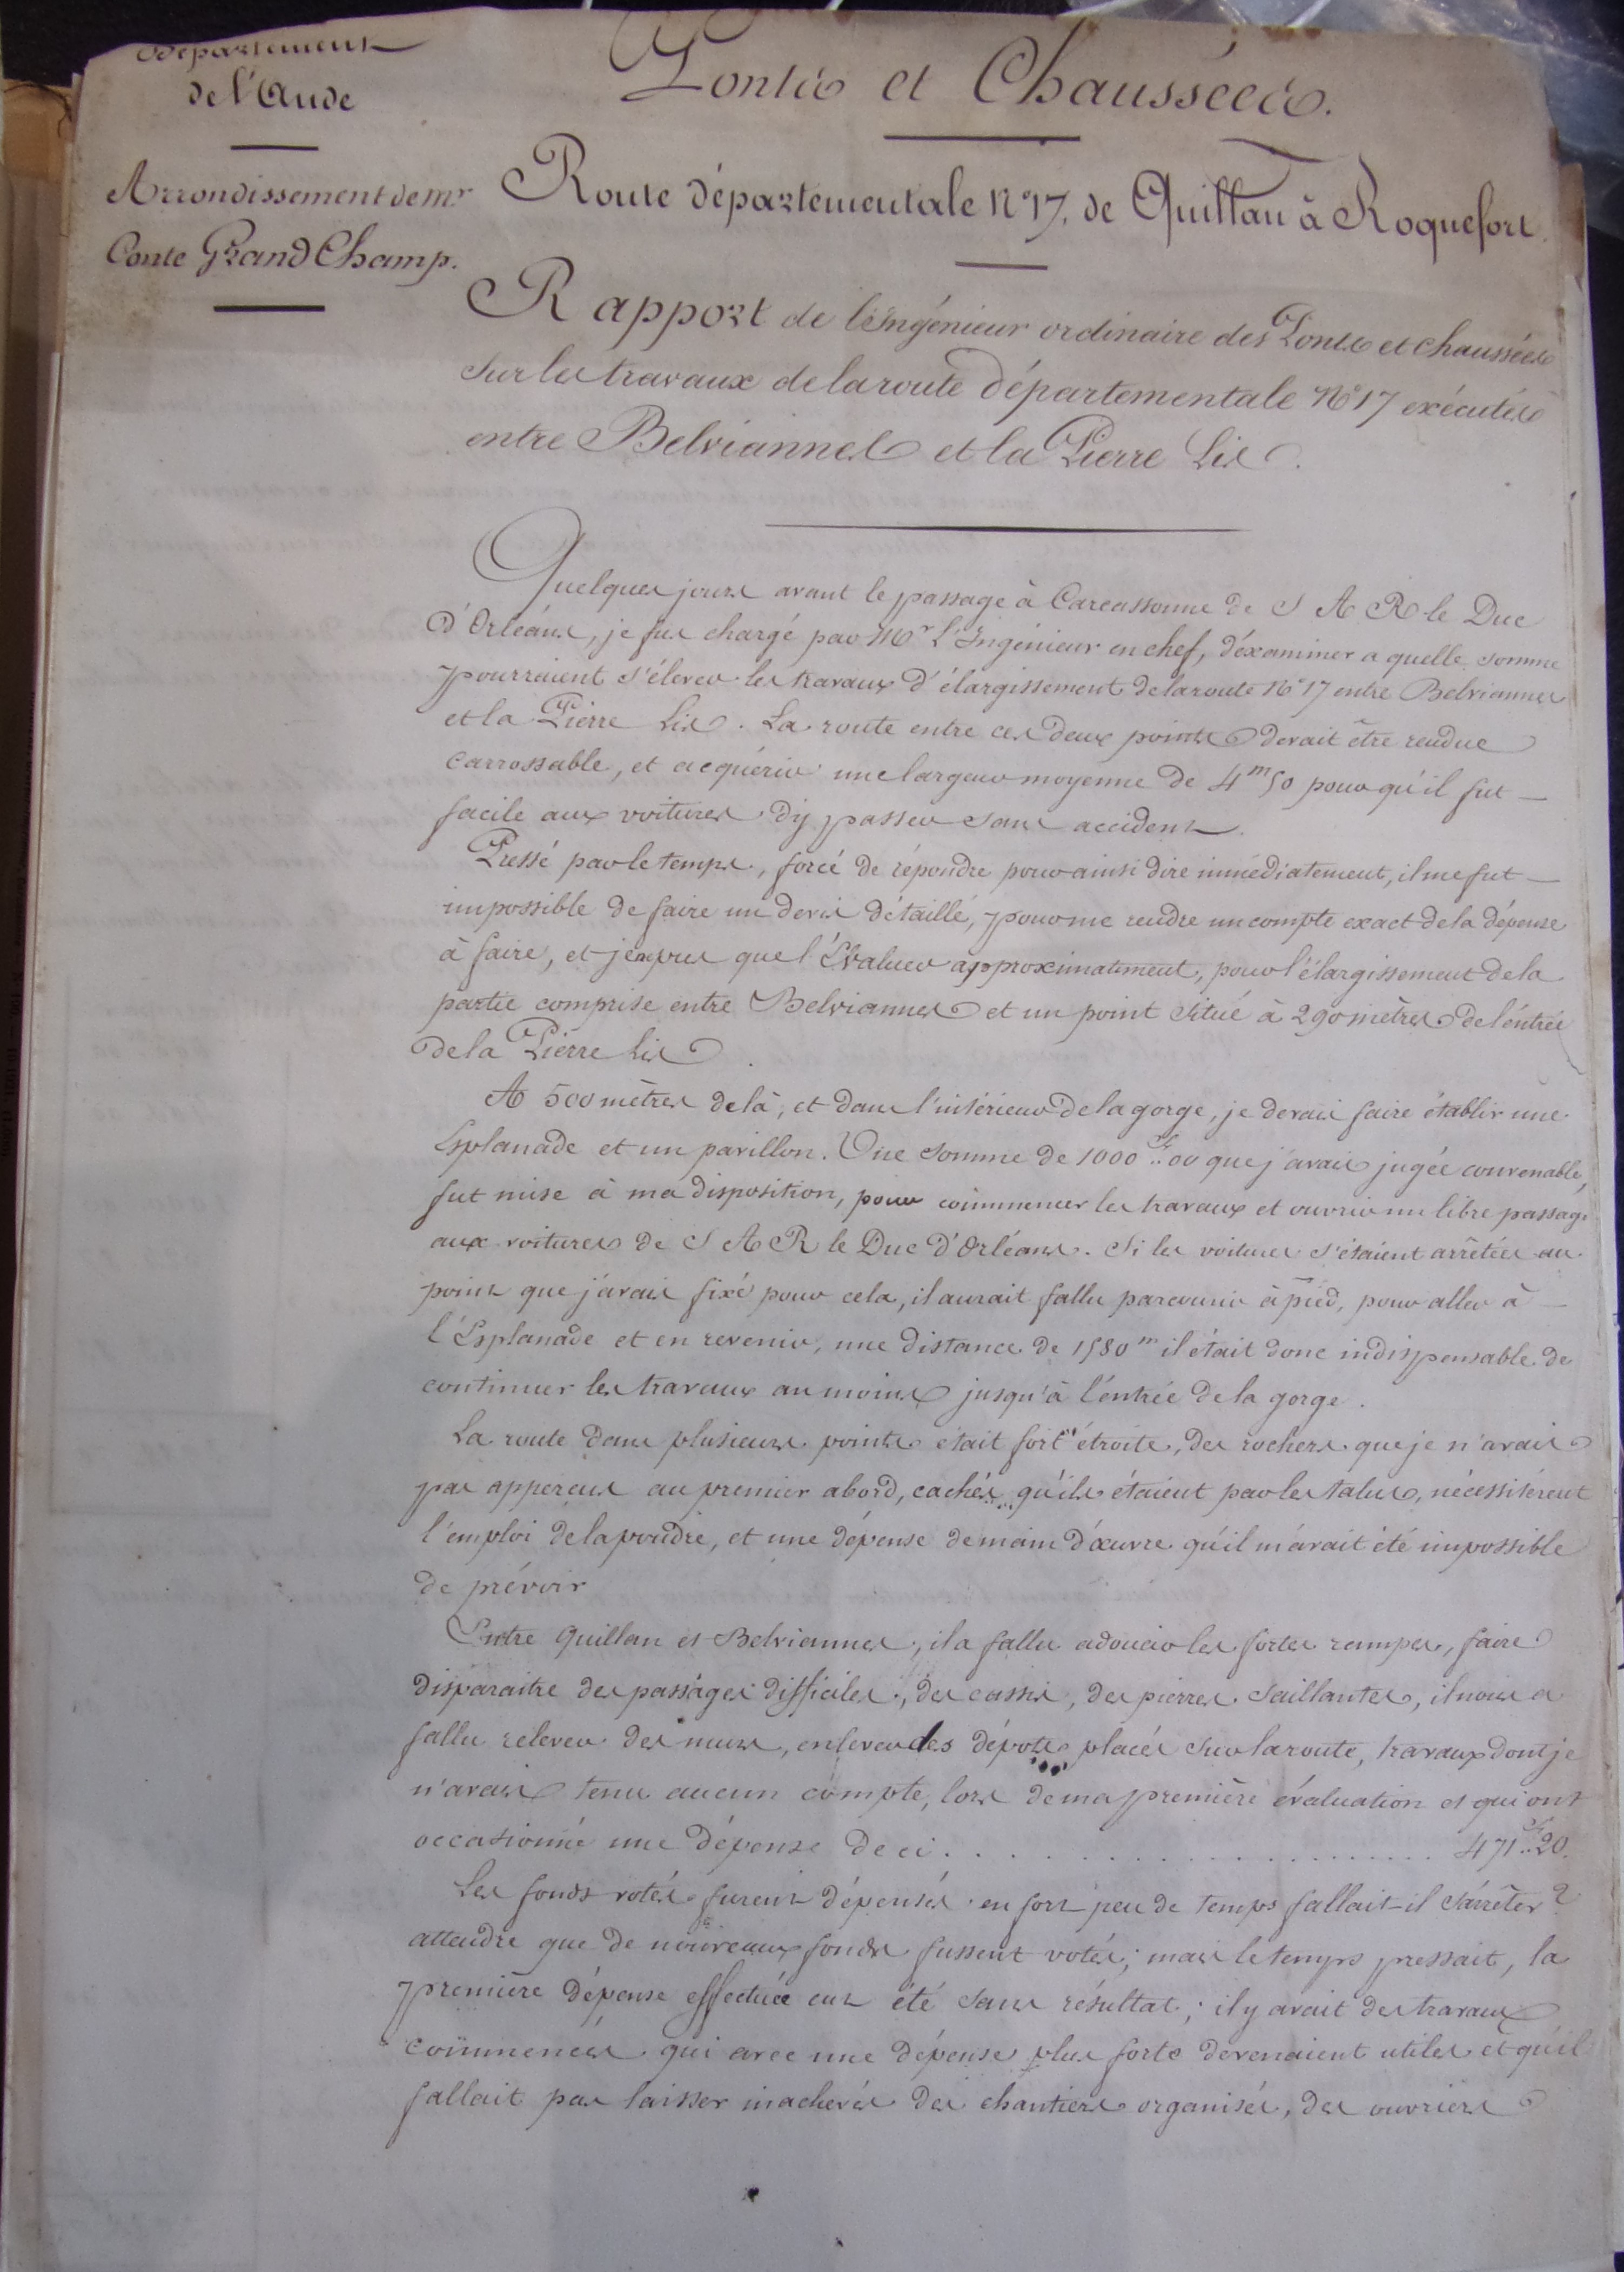 Département
de l'Aude
Arrondissement de Mr
Conte GrandChamp.
Ponts et Chaussées.
Route départementale N° 17, de Quillan à Roquefort.
Rapport de l'Ingénieur ordinaire des Ponts et chaussées
sur les travaux de la route départementale N° 17 exécutés
entre Belviannes et la Pierre Lis.
Quelques jours avant le passage à Carcassonne de S A R le Duc
d'Orléans, je fus chargé par Mr l'Ingénieur en chef, d'éxaminer a quelle somme
pourraient s'élever les travaux d'élargissement de la route N° 17 entre Belviannes
et la Pierre Lis. La route entre ces deux points devait être rendue
carrossable, et acquérir une largeur moyenne de 4m50 pour qu'il fut
facile aux voitures d'y passer sans accident.
Pressé par le temps, forcé de répondre pour ainsi dire immédiatement, il me fut
impossible de faire un devis détaillé, pour me rendre un compte exact de la dépense
à faire, et je ne pus que l'Evaluer approximativement, pour l'élargissement de la
partie comprise entre Belviannes et un point situé à 290 mètres de l'éntrée
de la Pierre Lis.
A 500 mètres de là, et dans l'intérieur de la gorge, je devais faire établir une
Esplanade et un pavillon. Une somme de 1000 f..00 que j'avais jugée convenable,
fut mise à ma disposition, pour commencer les travaux et ouvrir un libre passage
aux voitures de S A R le Duc d'Orléans. Si les voitures s'étaient arrêtées au
point que j'avais fixé pour cela, il aurait fallu parcourir à pied, pour aller à
l'Esplanade et en revenir, une distance de 1580m il était donc indispensable de
continuer les travaux au moins jusqu'à l'éntrée de la gorge.
La route dans plusieurs points était fort étroite, des rochers que je n'avais
pas apperçus au premier abord, cachés qu'ils étaient par les talus, nécessitèrent
l'emploi de la poudre, et une dépense de main d'œuvre qu'il m'avait été impossible
de prévoir
Entre Quillan et Belviannes, il a fallu adoucir les fortes rampes, faire
disparaitre des passages difficiles, des cassis, des pierres saillantes, il nous a
fallu relever des murs, enlever des dépots placés sur la route, travaux dont je
n'avais tenu aucun compte, lors de ma première évaluation et qui ont
occasionné une dépense de ci . . . . . . . . . . . . . . . . . . . . . . 471 f..20.
Les fonds votés furent dépensés en fort peu de temps fallait-il s'arrêter ?
attendre que de nouveaux fonds fussent votés; mais le temps pressait, la
première dépense effectuée eut été sans résultat; il y avait des travaux
commencés qui avec une dépense plus forte devenaient utiles et qu'il
fallait pas laisser inachevés des chantiers organisés, des ouvriers